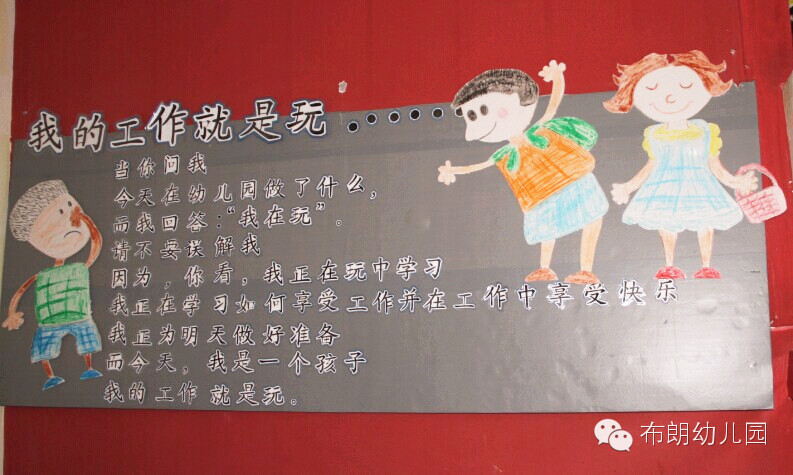 我的工作就是玩......
当你问我
今天在幼儿园做了什么，
而我回答：“我在玩”。
请不要误解我
因为，你看，我正在玩中学习
我正在学习如何享受工作并在工作中享受快乐
我正为明天做好准备
而今天，我是一个孩子
我的工作就是玩。
布朗幼儿园